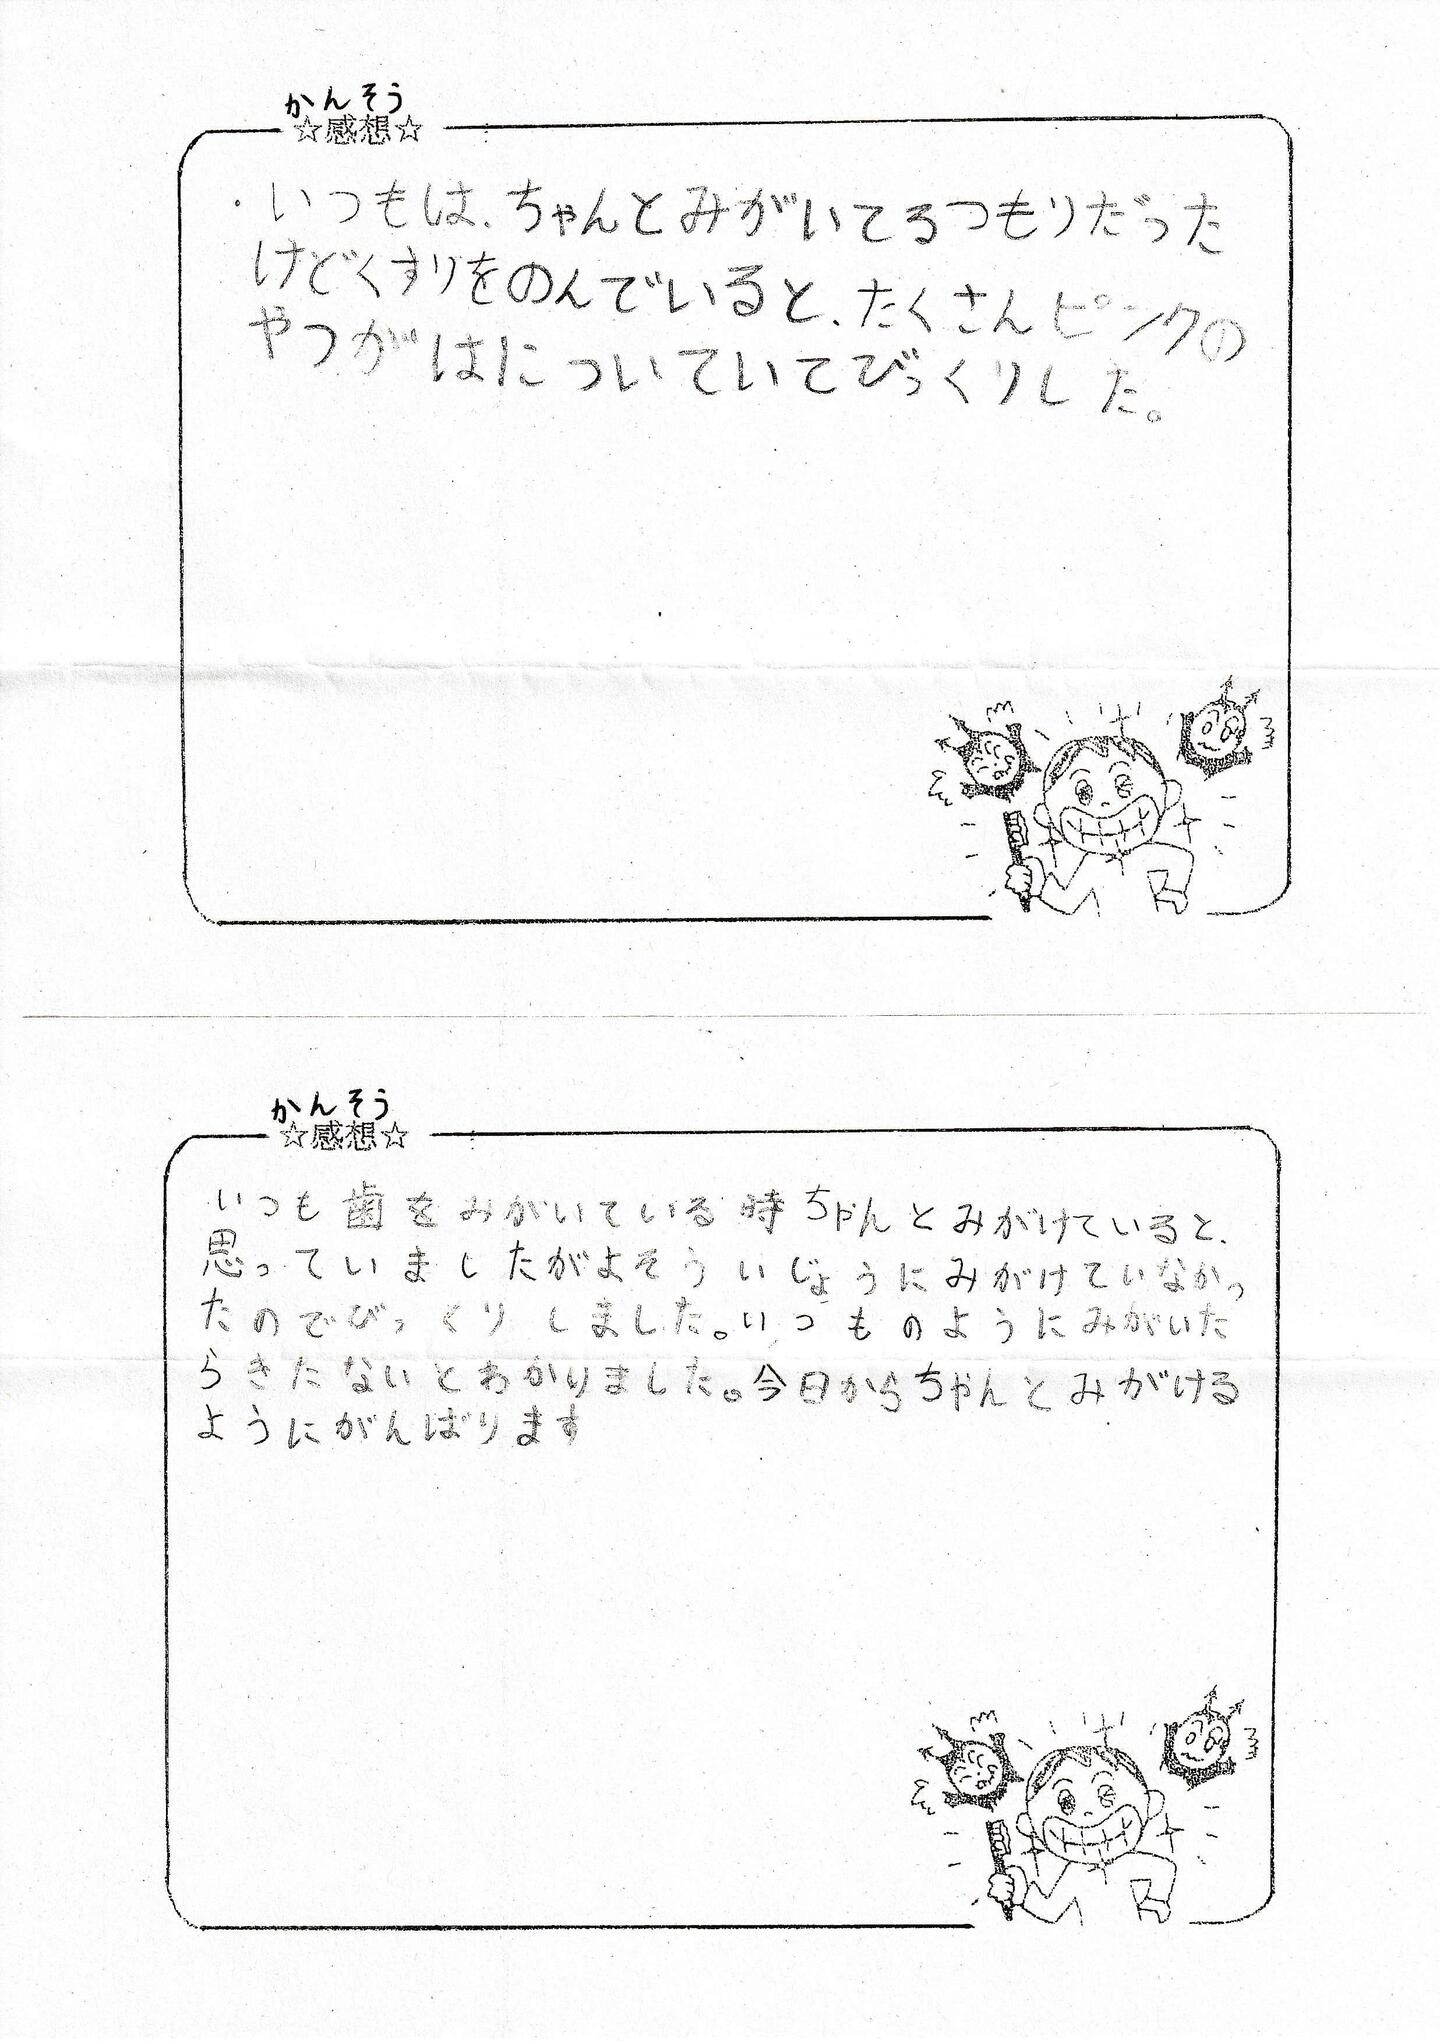 かんそう
☆感想☆
・いつもは、ちゃんとみがいてるつもりだった
けどくすりをのんでいると、たくさんピンクの
やつがはについていてびっくりした。
かんそう
☆感想☆
いつも歯をみがいている時ちゃんとみがけていると、
思っていましたがよそういじょうにみがけていなかっ
たのでびっくりしました。いつものようにみがいた
らきたないとわかりました。今日からちゃんとみがける
ようにがんばります